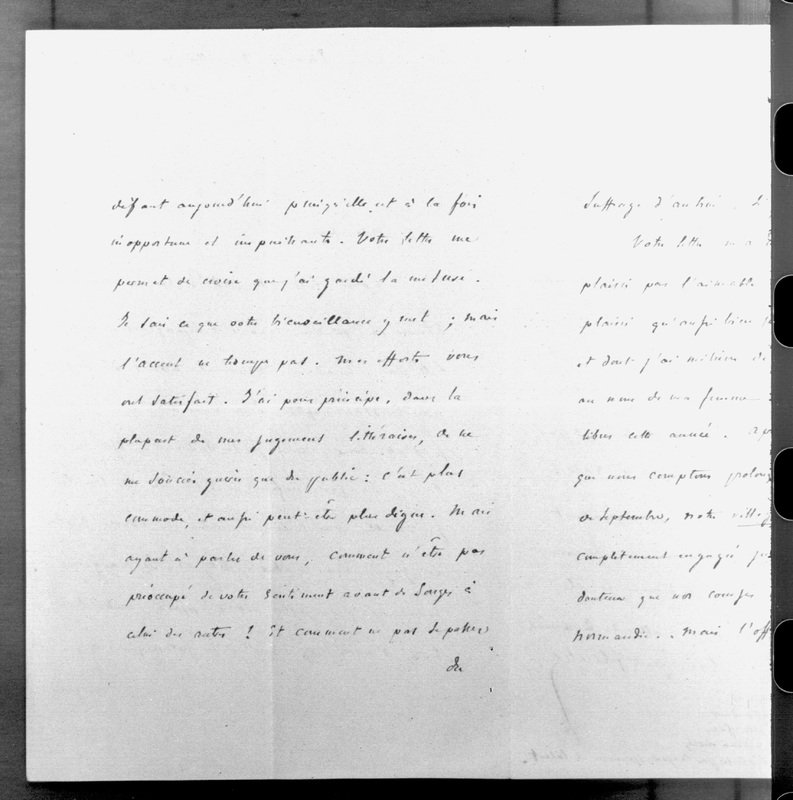 défaut aujourd'hui puisqu'elle est à la fois
inopportune et impuissante. Votre lettre me
permet de croire que j'ai gardé la mesure.
Je sais ce que votre bienveillance y met ; mais
l'accent ne trompe pas. Mes efforts vous
ont satisfait. J'ai pour principe, dans la
plupart de mes jugemens littéraires, de ne
me soucier guère que du public : c'est plus
commode, et aussi peut-être plus digne. Mais
ayant à parler de vous, comment n'être pas
préoccupé de votre sentiment avant de songer à
celui des autres ! Et comment ne pas se passer
du
suffrage d'autrui.
Votre lettre m'a
plaisir par l'aimable
plaisir qu'aussi bien
et dont j'ai mission de
au nom de ma femme
libres cette année.
que nous comptons prolon
de Septembre, notre
complètement engagé jus
douteux que nos courses
Normandie.. Mais l'off